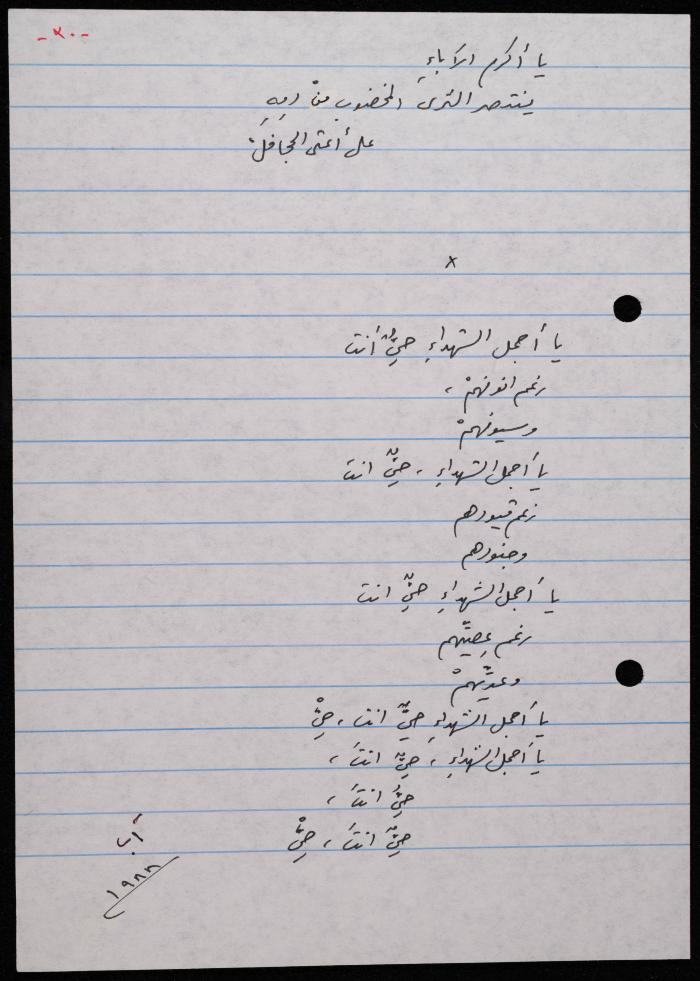 -٢٠-
يا أكرم الآباءِ
ينتصر الثرى المخضوب منْ دمِهِ
على أعتى الجحافلْ
x
يا أجمل الشهداءِ حيٌّ أنتَ
رغم انوفهمْ ،
وسيوفهمْ
يا أجمل الشهداءِ ، حيٌّ انتَ
رغم قيودهم
وجنودهم
يا أجمل الشهداءِ حيٌّ انت
رغم عِصيِّهم
وعديِّهمْ
يا أجمل الشهداءِ حيٌّ انتَ ، حيٌّ
يا أجمل الشهداءِ ، حيٌّ انتَ ،
حيٌّ انتَ ،
حيٌّ انتَ ، حيٌّ
آب
١٩٨٨